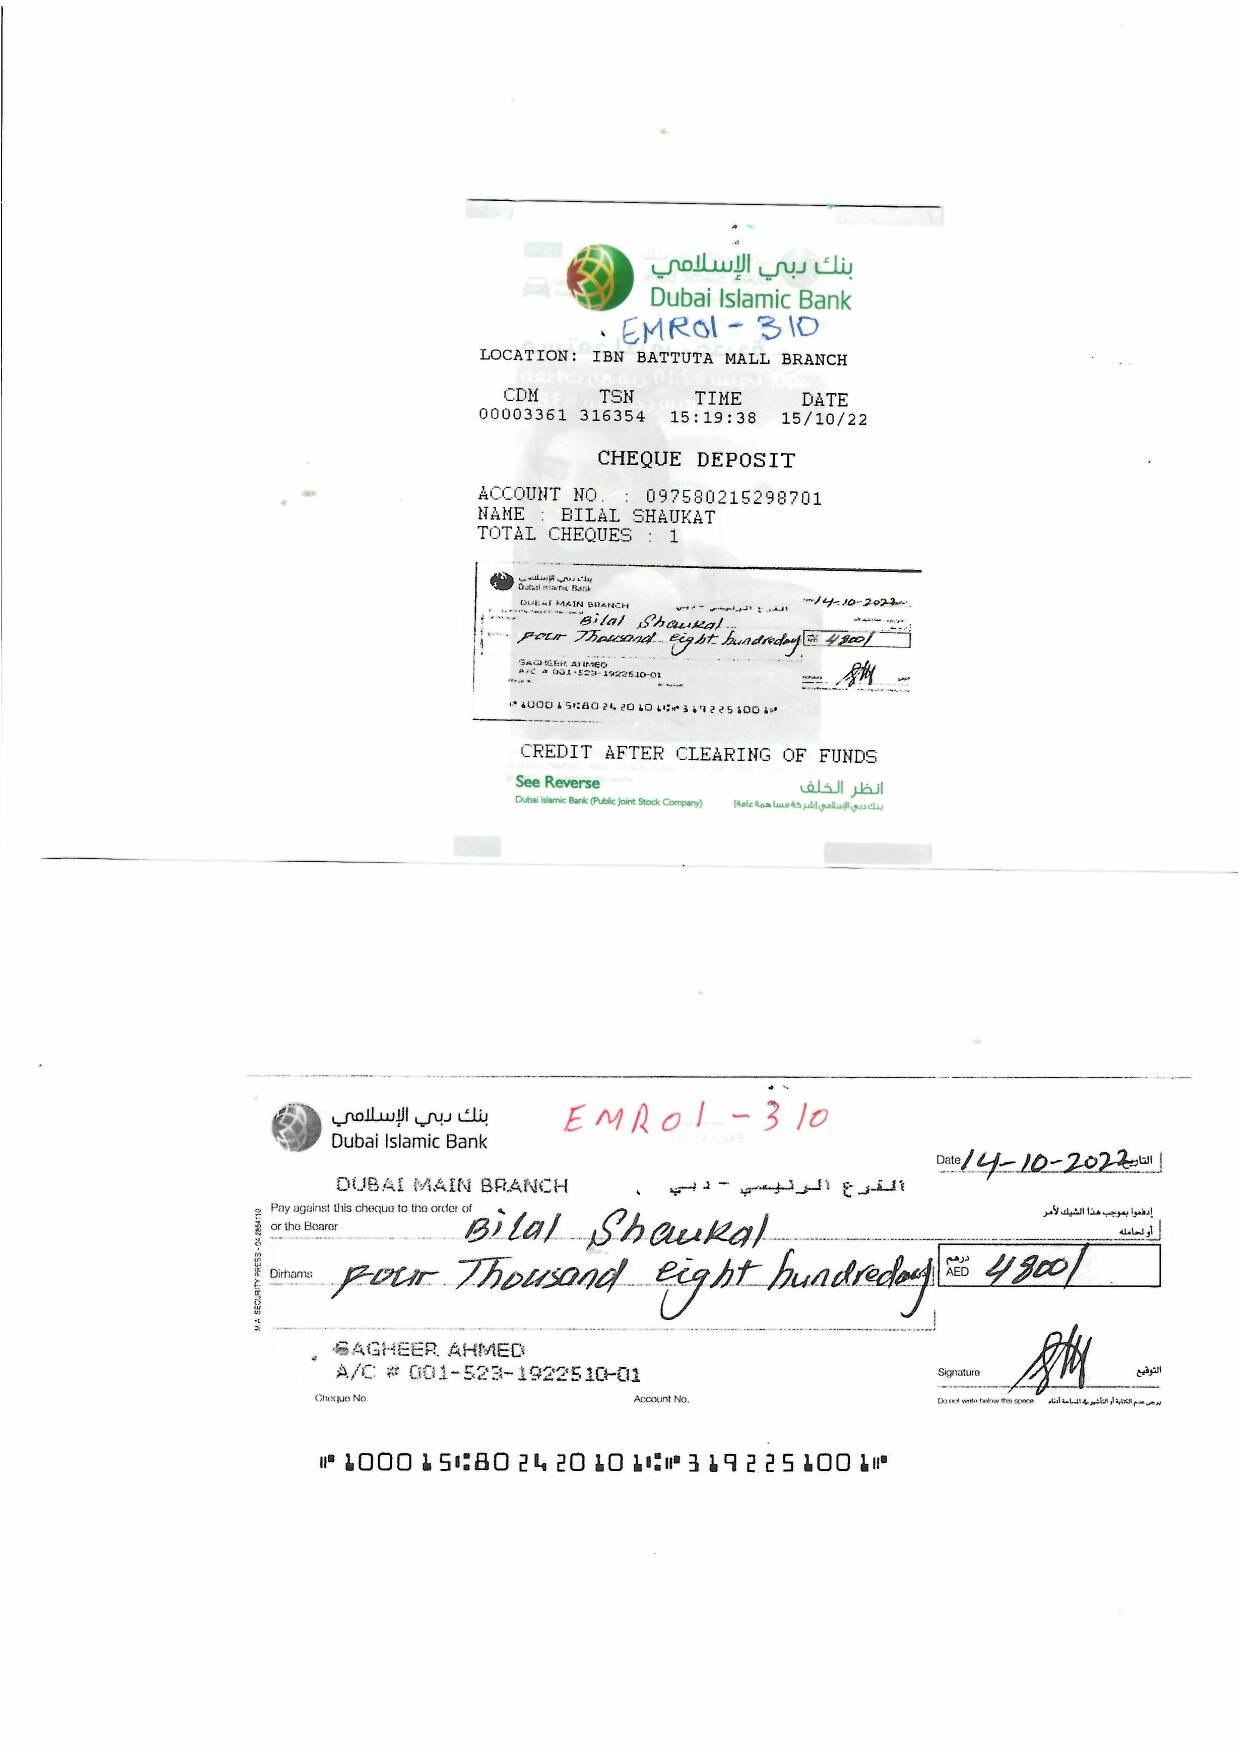 بنك دبي الإسلامي
Dubai Islamic Bank
EMR01-310
LOCATION: IBN BATTUTA MALL BRANCH
CDM TSN TIME DATE
00003361 316354 15:19:38 15/10/22
CHEQUE DEPOSIT
ACCOUNT NO. : 097580215298701
NAME : BILAL SHAUKAT
TOTAL CHEQUES : 1
بنك دبي الإسلامي
Dubai Islamic Bank
DUBAI MAIN BRANCH الفرع الرئيسي - دبي 14-10-2022
Bilal Shaukal
Four Thousand eight hundred only 4800/
SAGHEER AHMED
A/C # 001-523-1922510-01
⑈100015⑆802420101⑆⑈3192251001⑈
CREDIT AFTER CLEARING OF FUNDS
See Reverse انظر الخلف
Dubai Islamic Bank (Public Joint Stock Company) بنك دبي الإسلامي (شركة مساهمة عامة)
بنك دبي الإسلامي
Dubai Islamic Bank
EMR01-310
Date 14-10-2022 التاريخ
DUBAI MAIN BRANCH الفرع الرئيسي - دبي
Pay against this cheque to the order of إدفعوا بموجب هذا الشيك لأمر
or the Bearer Bilal Shaukal أو لحامله
Dirhams Four Thousand eight hundred only درهم AED 4800/
SAGHEER AHMED
A/C # 001-523-1922510-01
Signature التوقيع
Cheque No. Account No.
Do not write below this space يرجى عدم الكتابة أو التأشير في المساحة أدناه
⑈100015⑆802420101⑆⑈3192251001⑈